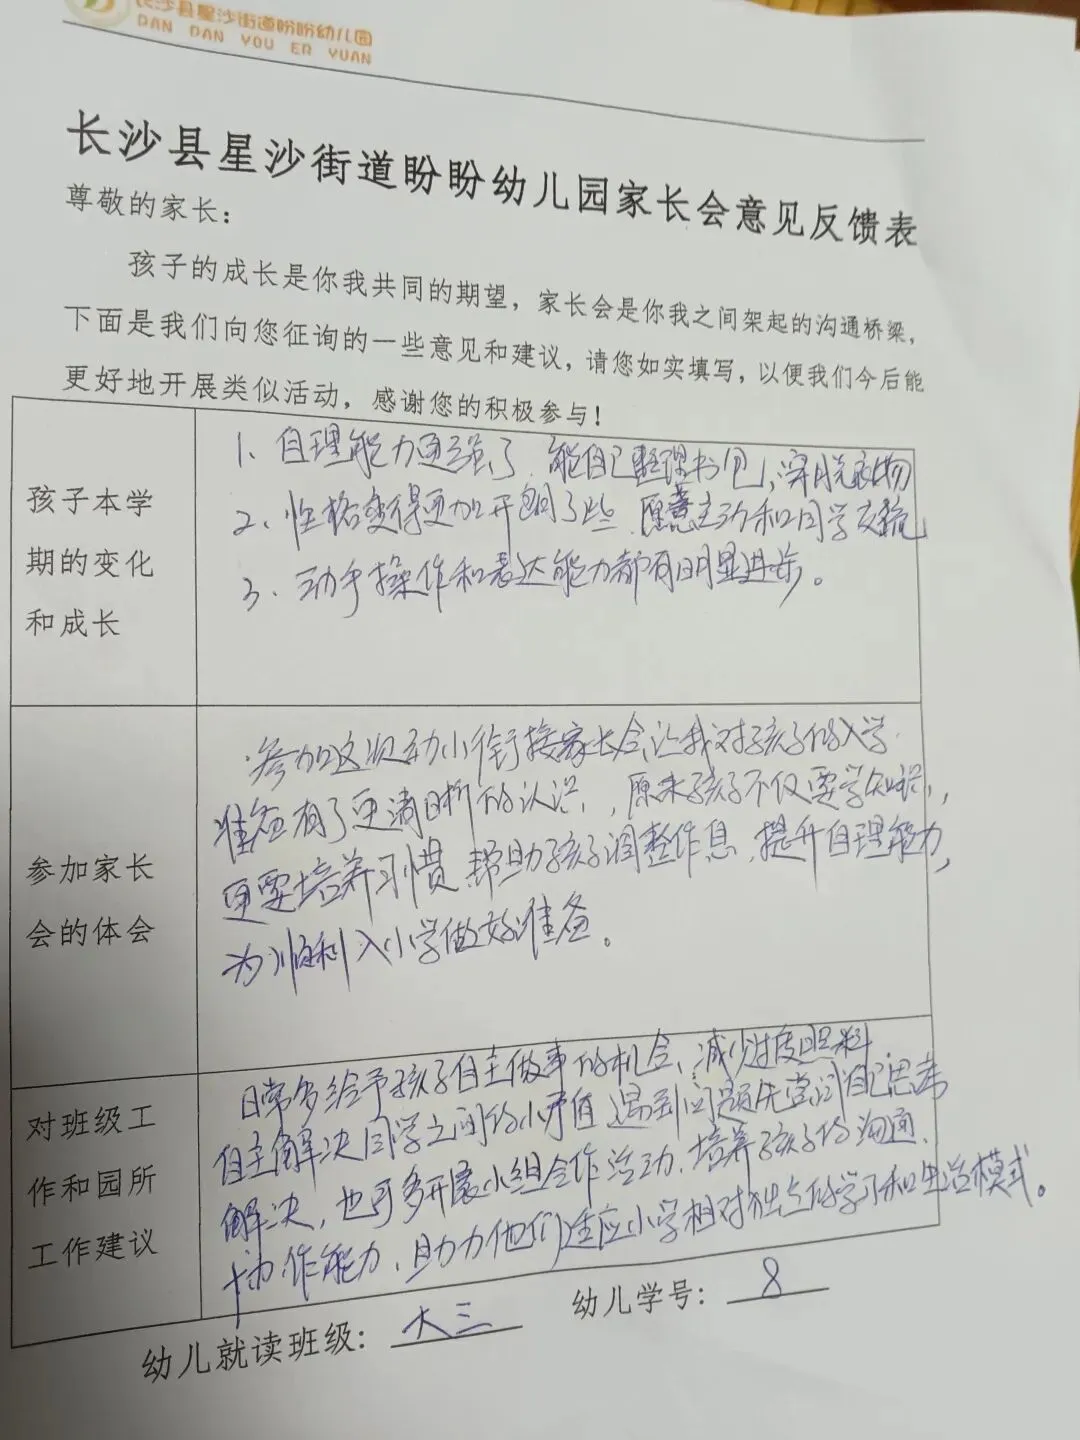 长沙县星沙街道盼盼幼儿园
DAN DAN YOU ER YUAN
长沙县星沙街道盼盼幼儿园家长会意见反馈表
尊敬的家长：
孩子的成长是你我共同的期望，家长会是你我之间架起的沟通桥梁，
下面是我们向您征询的一些意见和建议，请您如实填写，以便我们今后能
更好地开展类似活动，感谢您的积极参与！
孩子本学
期的变化
和成长
1、自理能力更强了，能自己整理书包，穿脱衣物
2、性格变得更加开朗了些，愿意主动和同学交流
3、动手操作和表达能力都有明显进步。
参加家长
会的体会
参加这次幼小衔接家长会，让我对孩子的入学
准备有了更清晰的认识，原来孩子不仅要学知识，
更要培养习惯，帮助孩子调整作息，提升自理能力，
为顺利入小学做好准备。
对班级工
作和园所
工作建议
日常多给予孩子自主做事的机会、减少过度照料，
自主解决同学之间的小矛盾，遇到问题先尝试自己思考
解决，也可多开展小组合作活动，培养孩子的沟通、
协作能力，助力他们适应小学相对独立的学习和生活模式。
幼儿就读班级：大三 幼儿学号：8